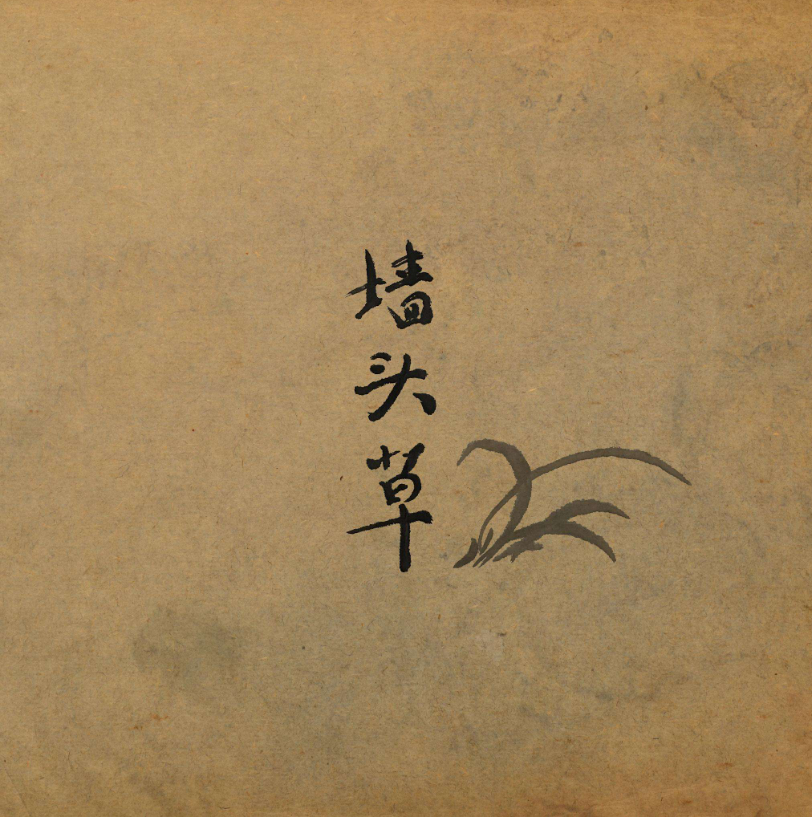 墙头草